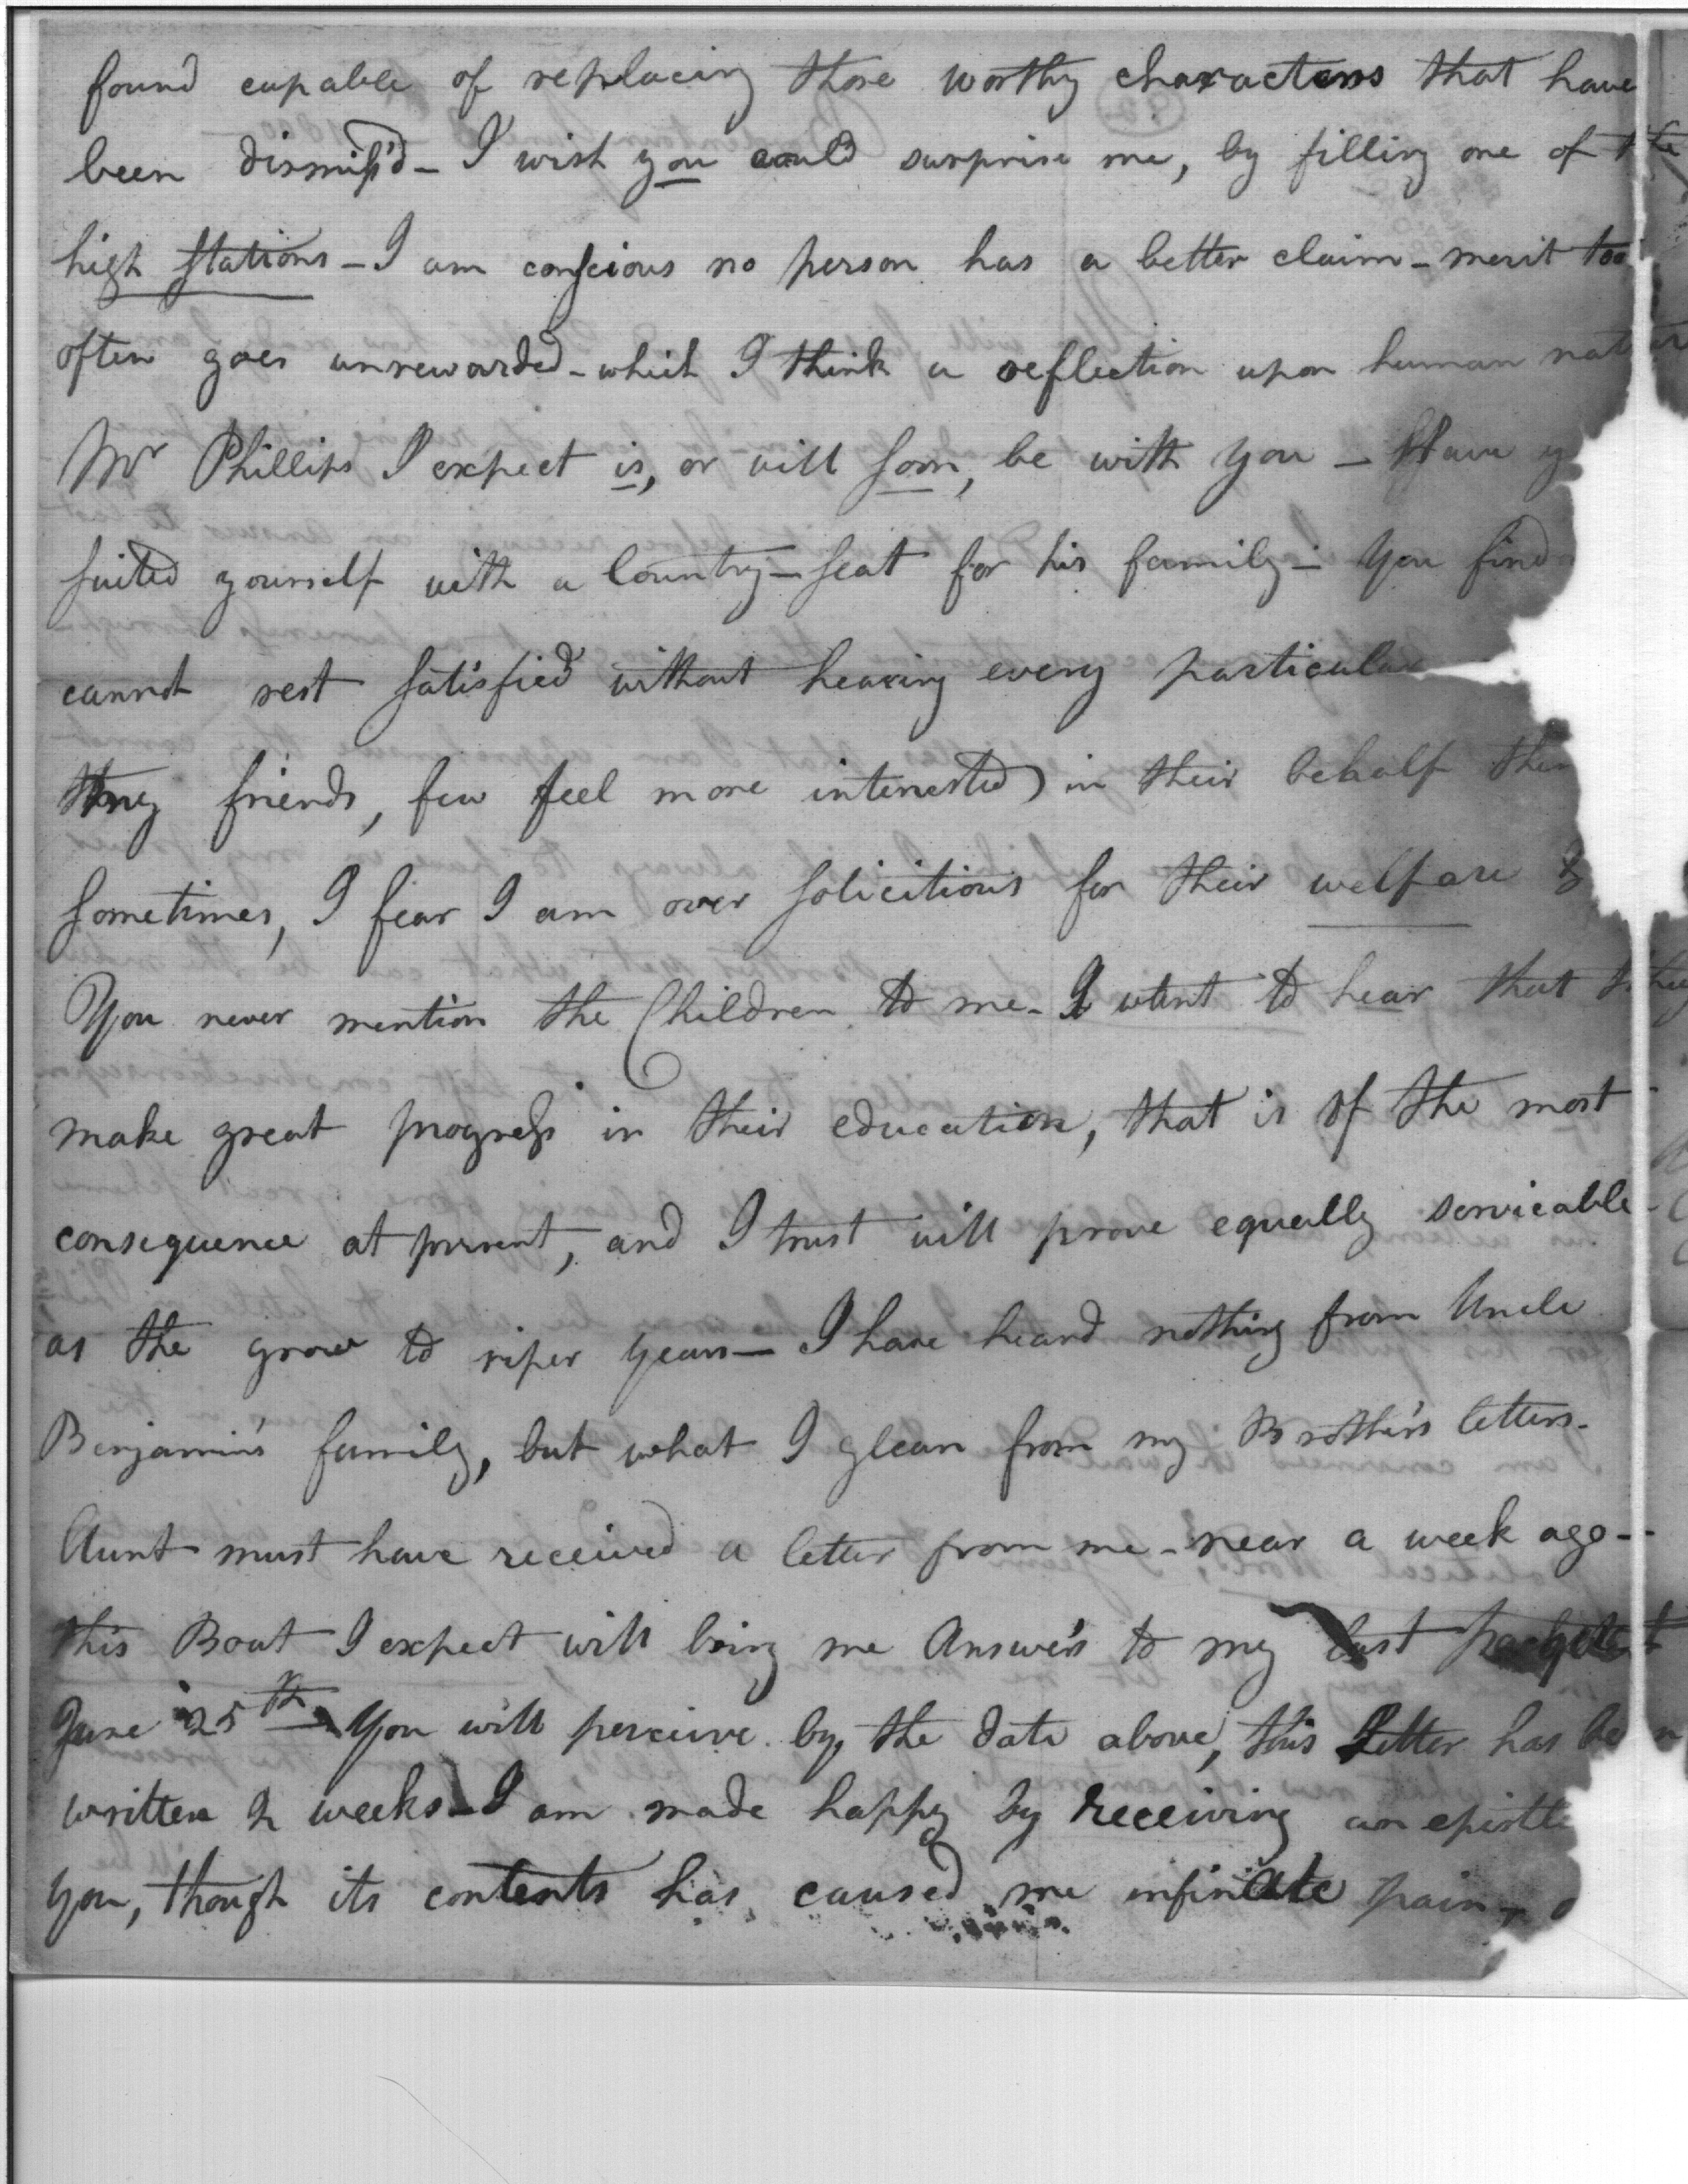 found capable of replacing those worthy characters that have
been dismiss'd - I wish you could surprise me, by filling one of the
high stations - I am conscious no person has a better claim - merit too
often goes unrewarded - which I think a reflection upon human
Mr Phillips I expect is, or will soon, be with you - Have
suited yourself with a Country-seat for his family - You find
cannot rest satisfied without hearing every particular
my friends, few feel more interested in their behalf then
sometimes, I fear I am over solicitious for their welfare &
You never mention the Children to me - I want to hear that they
make great progress in their education, that is of the most
consequence at present, and I trust will prove equally servicable -
as the grow to riper years - I have heard nothing from Uncle
Benjamin's family, but what I glean from my Brother's letters -
Aunt must have received a letter from me - near a week ago -
this Boat I expect will bring me Answer's to my last
June 25th - You will perceive by, the date above, this Letter has been
written 2 weeks - I am made happy by receiving an epistle
you, though its contents has caused me infinate pain -